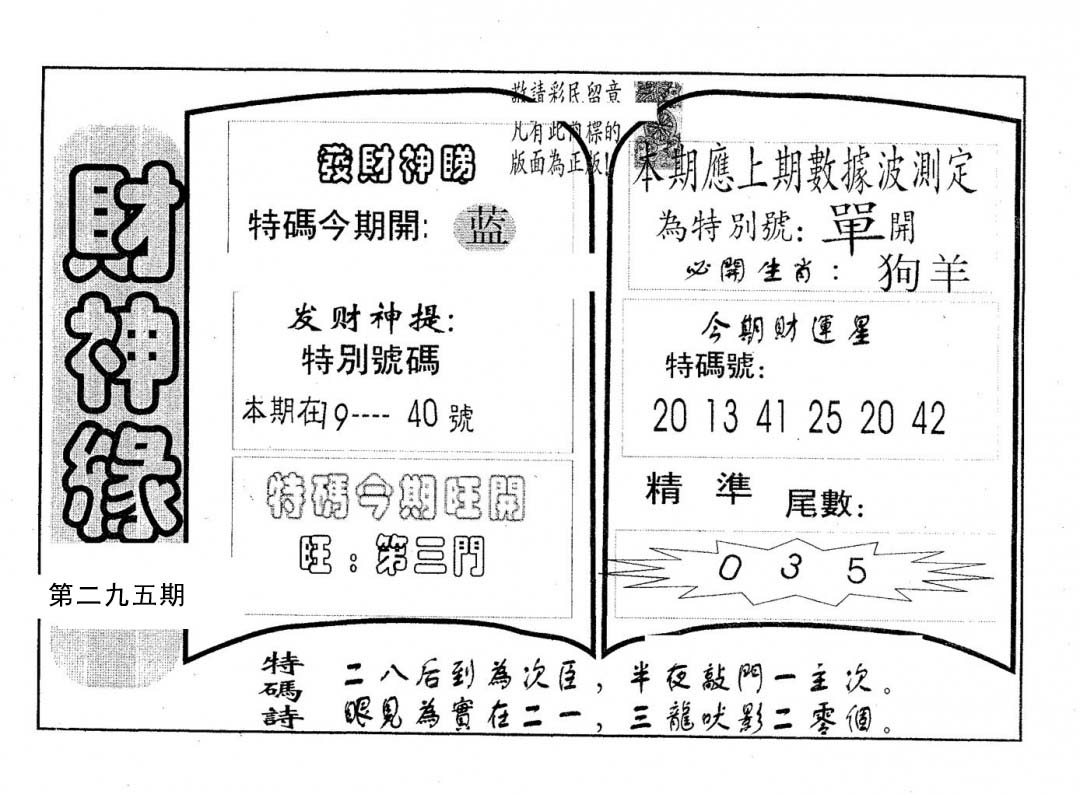 財神緣
第二九五期
敬請彩民留意
凡有此商標的
版面為正版!
發財神睇
特碼今期開: 蓝
发财神提:
特別號碼
本期在19---- 40 號
特碼今期旺開
旺:第三門
本期應上期數據波測定
為特別號: 單開
必開生肖: 狗羊
今期財運星
特碼號:
20 13 41 25 20 42
精準 尾數:
0 3 5
特碼詩
二八后到為次臣,半夜敲門一主次。
眼見為實在二一,三龍吠影二零個。